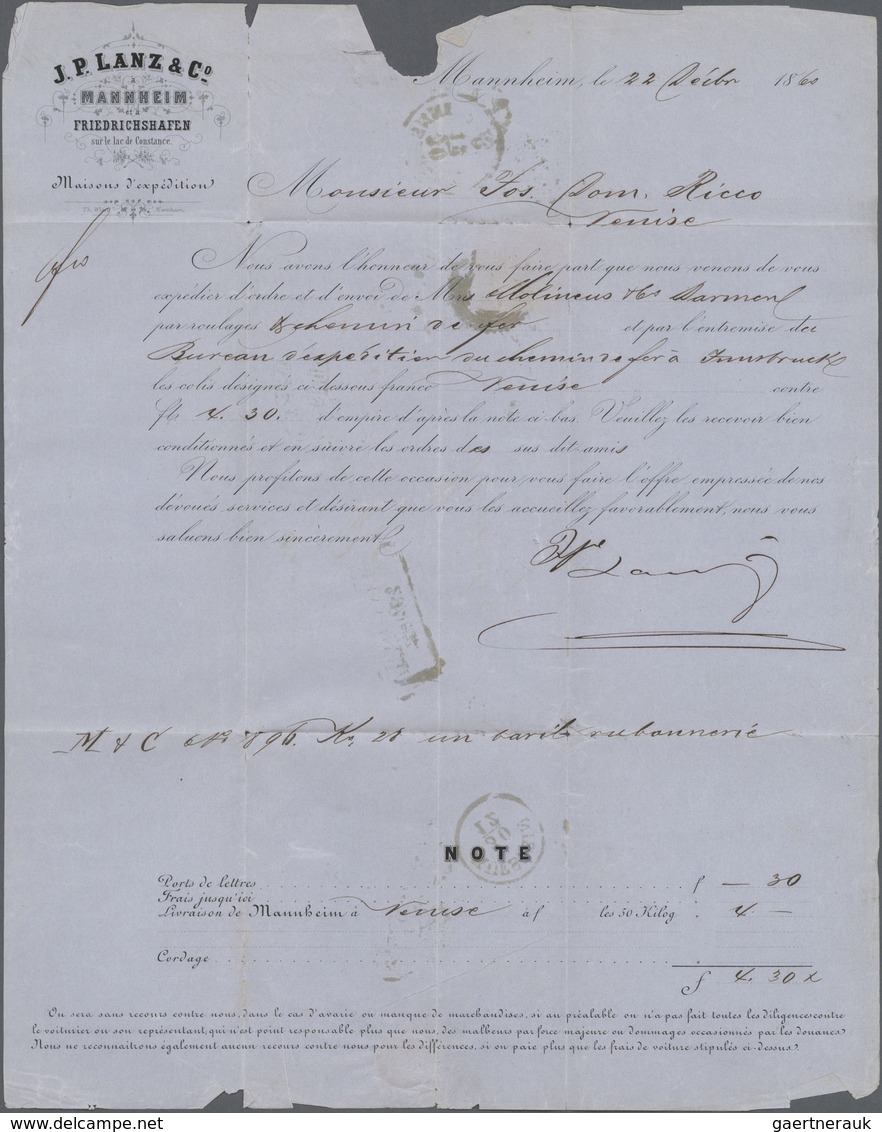 J. P. LANZ & Co
à
MANNHEIM
et à
FRIEDRICHSHAFEN
sur le lac de Constance.
Maisons d'expédition
Mannheim, le 22 Décbr 1860
Monsieur Jos. Dom. Ricco
Venise
Nous avons l'honneur de vous faire part que nous venons de vous
expédier d'ordre et d'envoi de Mrs Molineus & Co Barmen
par roulages & chemin de fer et par l'entremise du
Bureau d'expédition du chemin de fer à Innsbruck
les colis désignés ci-dessous franco Venise contre
fl. 4. 30. d'empire d'après la note ci-bas. Veuillez les recevoir bien
conditionnés et en suivre les ordres des sus dit amis
Nous profitons de cette occasion pour vous faire l'offre empressée de nos
dévoués services et désirant que vous les accueillez favorablement, nous vous
saluons bien sincèrement.
M & C No 896. Ko 28 un rubannerie
NOTE
Ports de lettres f — 30
Frais jusqu'ici
Livraison de Mannheim à Venise à f les 50 Kilog. 4. —
Cordage
f 4. 30 x
On sera sans recours contre nous, dans le cas d'avarie ou manque de marchandises, si au préalable on n'a pas fait toutes les diligences contre
le voiturier ou son représentant, qui n'est point responsable plus que nous, des malheurs par force majeure ou dommages occasionnés par les douanes.
Nous ne reconnaitrons également aucun recours contre nous pour les différences, si on paie plus que les frais de voiture stipulés ci-dessus.
delcampe.net
gaertnerauk